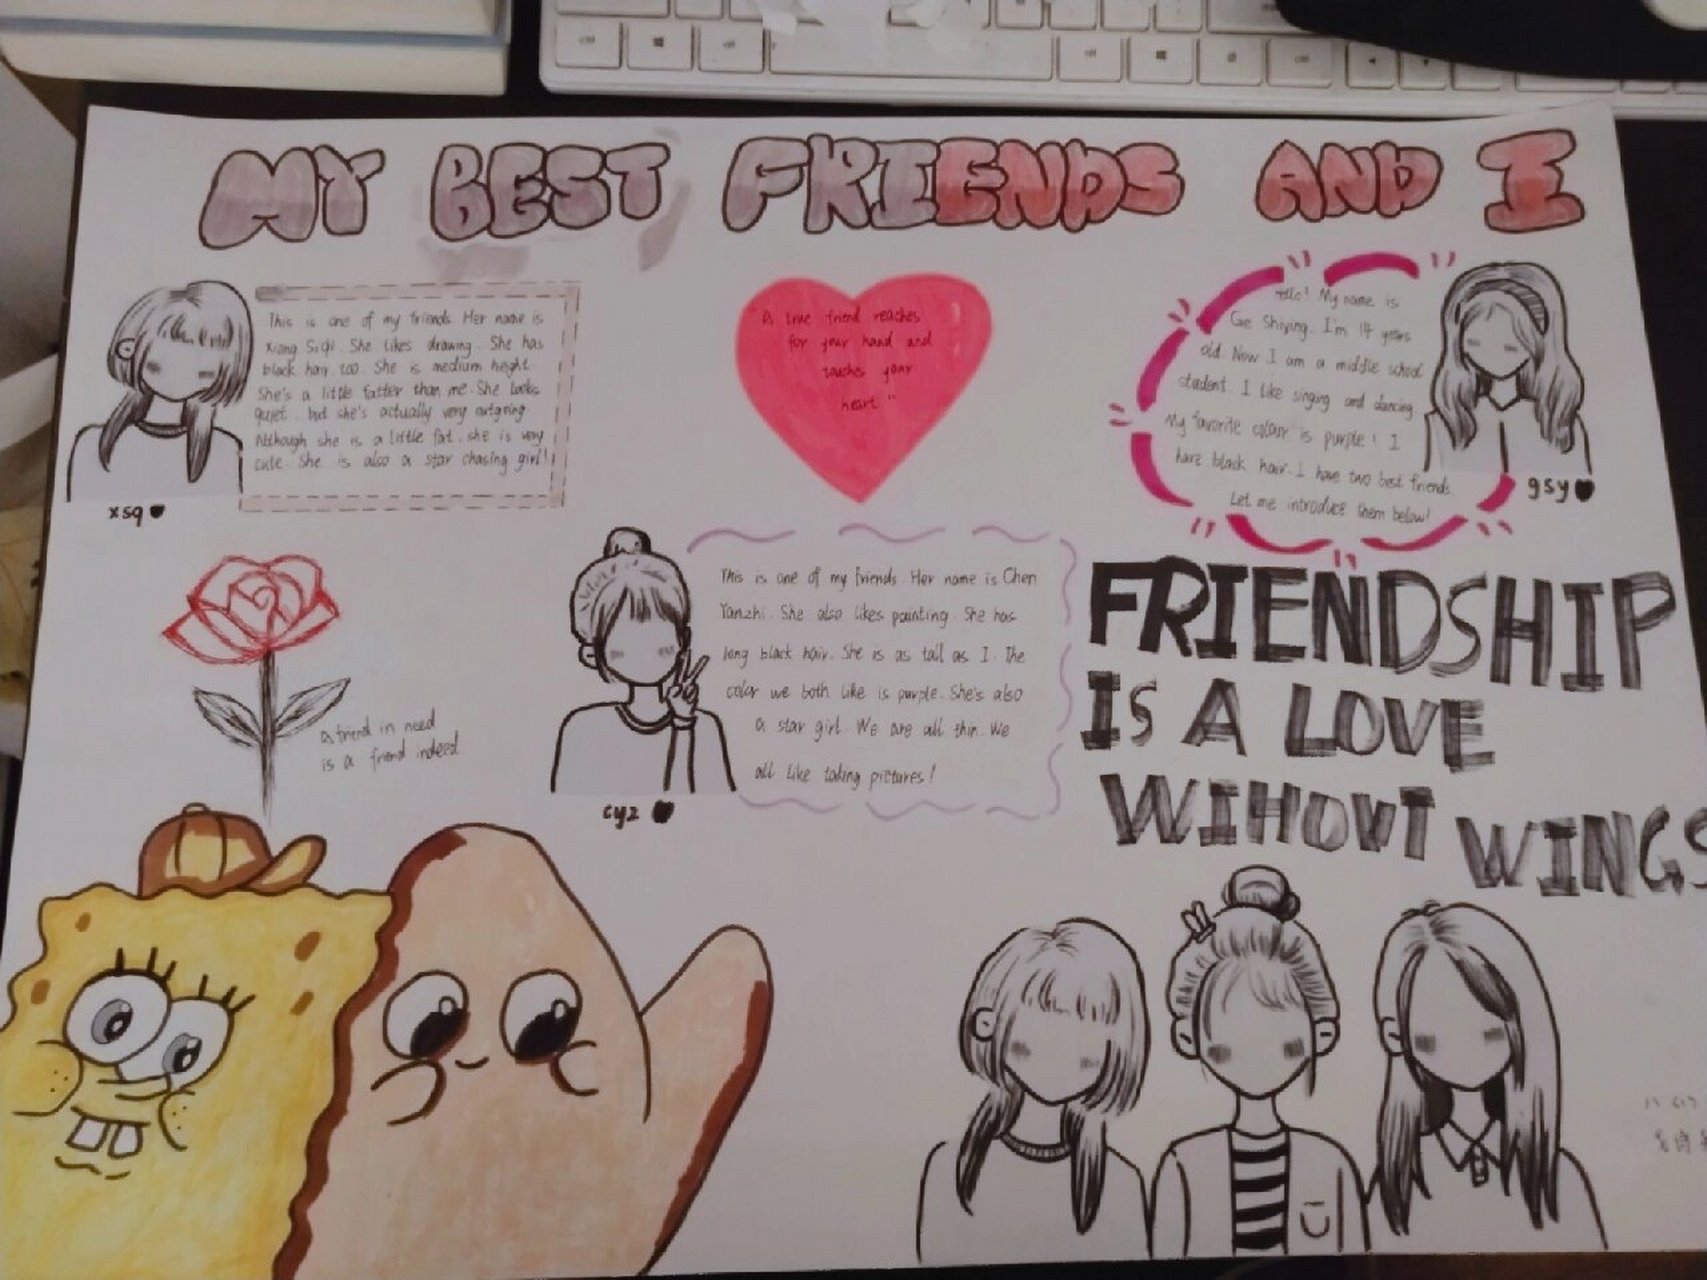 MY BEST FRIENDS AND I
This is one of my friends. Her name is
Xiong SiQi. She likes drawing. She has
black hair too. She is medium height.
She's a little fatter than me. She looks
quiet, but she's actually very outgoing.
Although she is a little fat, she is very
cute. She is also a star chasing girl!
xsq
"A true friend reaches
for your hand and
touches your
heart"
Hello! My name is
Ge Shiying. I'm 14 years
old. Now I am a middle school
student. I like singing and dancing
My favorite colour is purple! I
have black hair. I have two best friends
Let me introduce them below!
gsy
a friend in need
is a friend indeed
This is one of my friends. Her name is Chen
Yanzhi. She also likes painting. She has
long black hair. She is as tall as I. The
color we both like is purple. She's also
a star girl. We are all thin. We
all like taking pictures!
cyz
FRIENDSHIP
IS A LOVE
WIHOUT WINGS